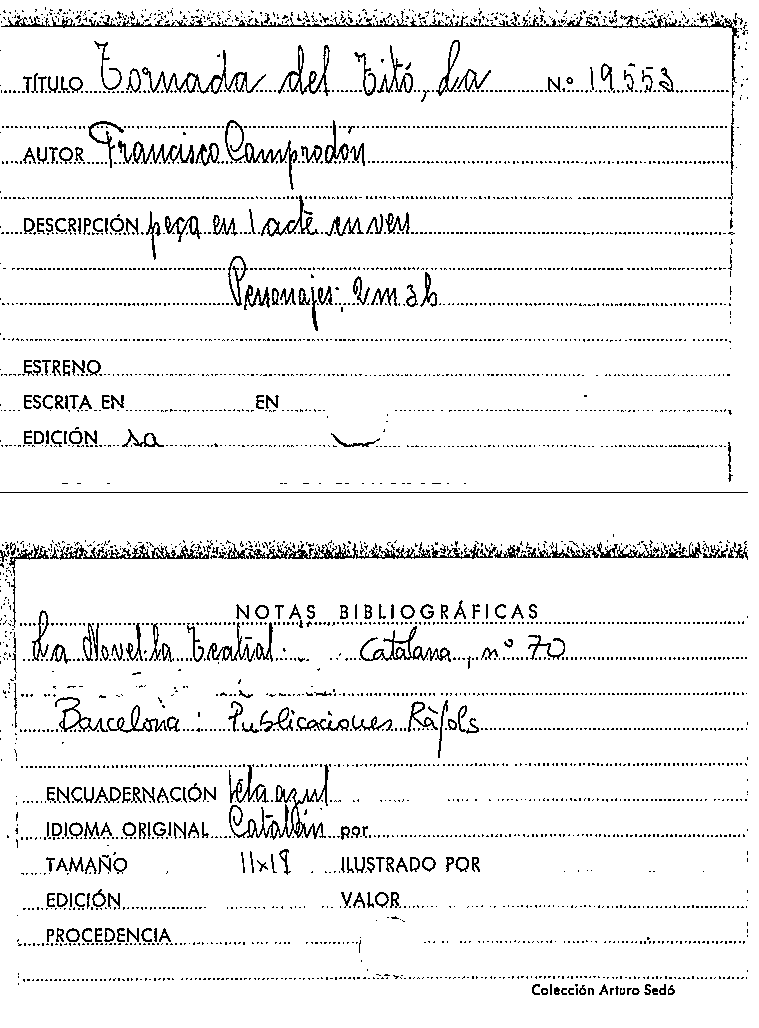 TÍTULO Tornada del Titó, La N.º 19553
AUTOR Francisco Camprodón
DESCRIPCIÓN peça en 1 acte en vers
Personajes: 2 m 3 h
ESTRENO
ESCRITA EN EN
EDICIÓN sa
NOTAS BIBLIOGRÁFICAS
La Novel·la Teatral Catalana, nº 70
Barcelona: Publicaciones Ràfols
ENCUADERNACIÓN tela azul
IDIOMA ORIGINAL Catalán por
TAMAÑO 11x18 ILUSTRADO POR
EDICIÓN VALOR
PROCEDENCIA
Colección Arturo Sedó